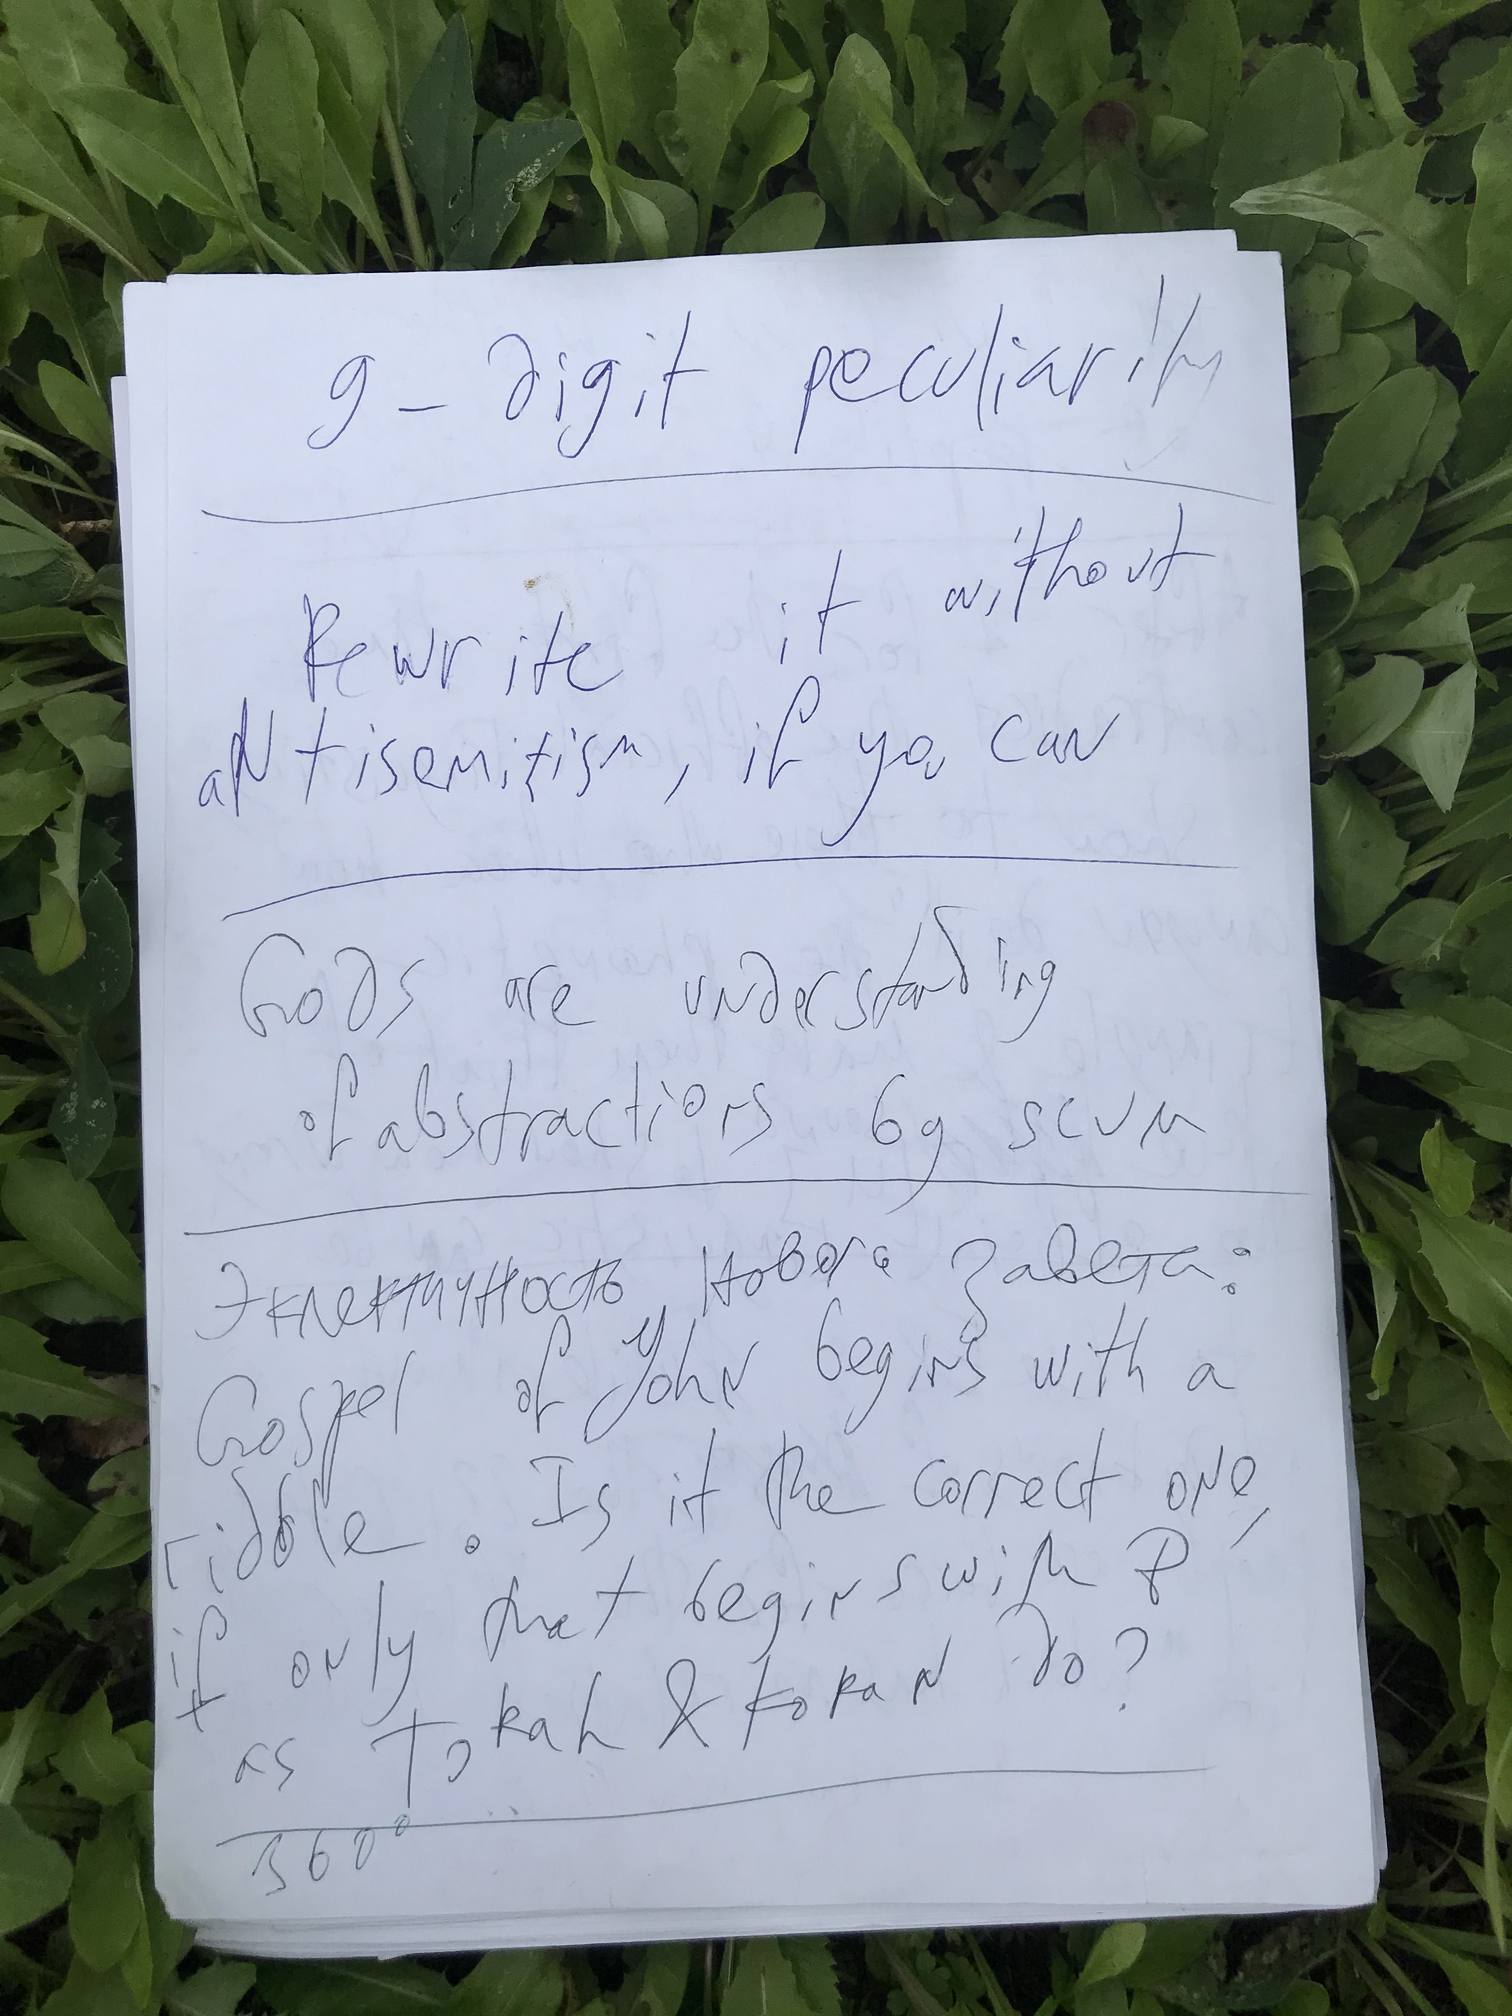 9-digit peculiarity
Rewrite it without
aNtisemitism, if you can
Gods are understanding
of abstractions by scum
Эклектичность Нового Завета:
Gospel of John begins with a
riddle. Is it the correct one,
if only that begins with B
as ToRah & KoRaN do?
360°